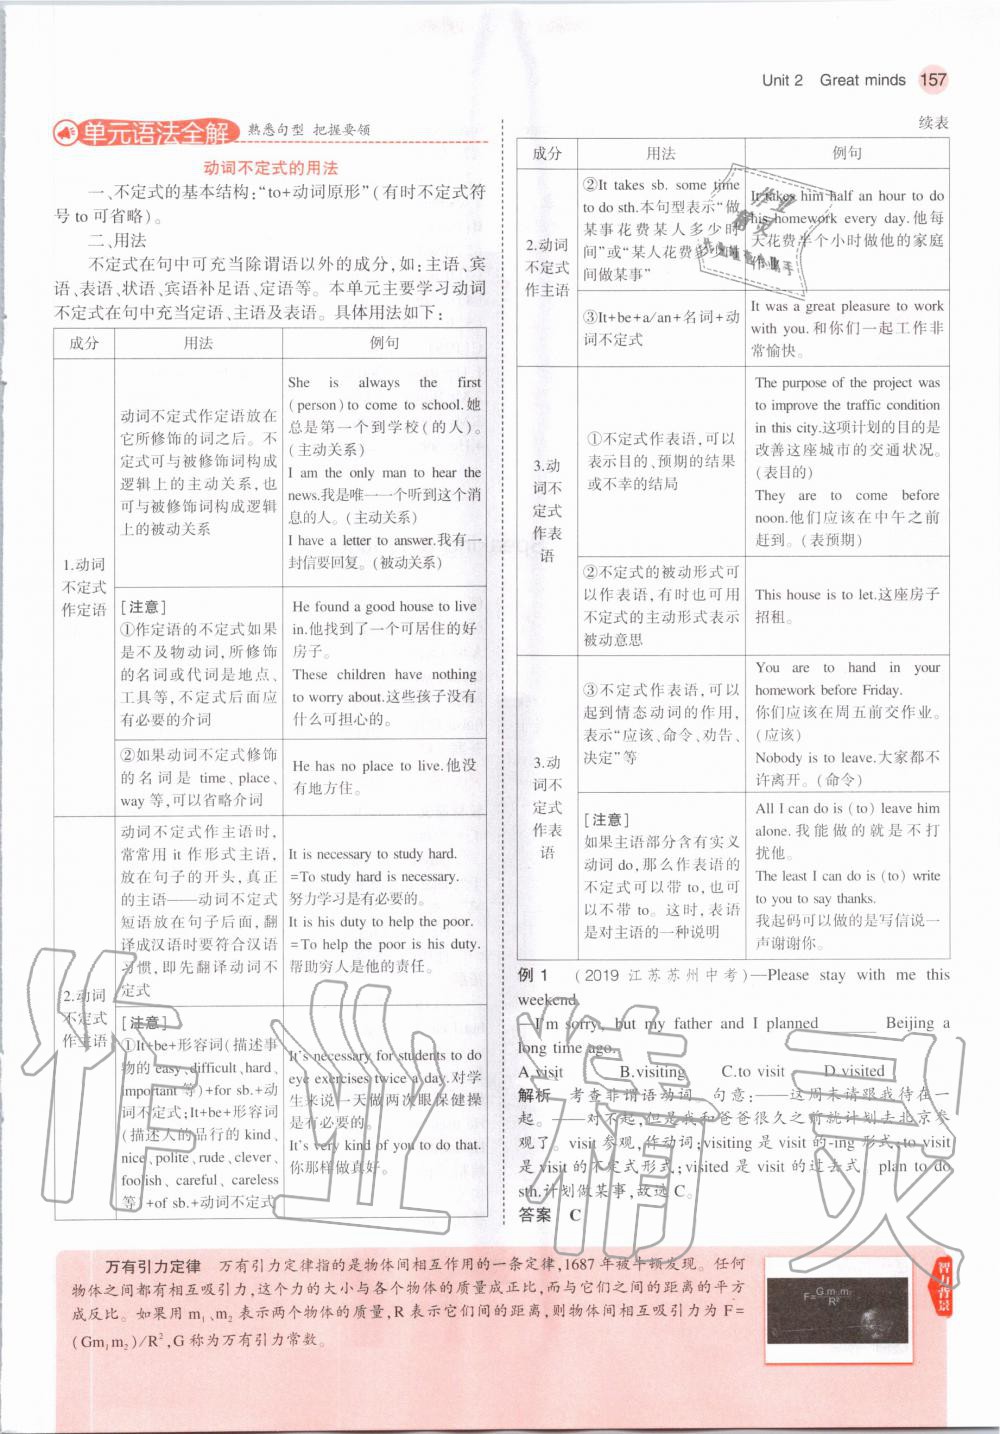 Unit 2 Great minds 157
单元语法全解 熟悉句型 把握要领
动词不定式的用法
一、不定式的基本结构:“to+动词原形”(有时不定式符
号 to 可省略)。
二、用法
不定式在句中可充当除谓语以外的成分,如:主语、宾
语、表语、状语、宾语补足语、定语等。本单元主要学习动词
不定式在句中充当定语、主语及表语。具体用法如下:
成分 用法 例句
1.动词
不定式
作定语
动词不定式作定语放在
它所修饰的词之后。不
定式可与被修饰词构成
逻辑上的主动关系,也
可与被修饰词构成逻辑
上的被动关系
She is always the first
(person)to come to school.她
总是第一个到学校(的人)。
(主动关系)
I am the only man to hear the
news.我是唯一一个听到这个消
息的人。(主动关系)
I have a letter to answer.我有一
封信要回复。(被动关系)
[注意]
①作定语的不定式如果
是不及物动词,所修饰
的名词或代词是地点、
工具等,不定式后面应
有必要的介词
He found a good house to live
in.他找到了一个可居住的好
房子。
These children have nothing
to worry about.这些孩子没有
什么可担心的。
②如果动词不定式修饰
的名词是 time、place、
way 等,可以省略介词
He has no place to live.他没
有地方住。
2.动词
不定式
作主语
动词不定式作主语时,
常常用 it 作形式主语,
放在句子的开头,真正
的主语——动词不定式
短语放在句子后面,翻
译成汉语时要符合汉语
习惯,即先翻译动词不
定式
It is necessary to study hard.
=To study hard is necessary.
努力学习是有必要的。
It is his duty to help the poor.
=To help the poor is his duty.
帮助穷人是他的责任。
[注意]
①It+be+形容词(描述事
物的 easy、difficult、hard、
important 等)+for sb.+动
词不定式;It+be+形容词
(描述人的品行的 kind、
nice、polite、rude、clever、
foolish、careful、careless
等)+of sb.+动词不定式
It's necessary for students to do
eye exercises twice a day.对学
生来说一天做两次眼保健操
是有必要的。
It's very kind of you to do that.
你那样做真好。
续表
成分 用法 例句
2.动词
不定式
作主语
②It takes sb. some time
to do sth.本句型表示“做
某事花费某人多少时
间”或“某人花费多少时
间做某事”
It takes him half an hour to do
his homework every day.他每
天花费半个小时做他的家庭
作业。
③It+be+a/an+名词+动
词不定式
It was a great pleasure to work
with you.和你们一起工作非
常愉快。
3.动
词不
定式
作表
语
①不定式作表语,可以
表示目的、预期的结果
或不幸的结局
The purpose of the project was
to improve the traffic condition
in this city.这项计划的目的是
改善这座城市的交通状况。
(表目的)
They are to come before
noon.他们应该在中午之前
赶到。(表预期)
②不定式的被动形式可
以作表语,有时也可用
不定式的主动形式表示
被动意思
This house is to let.这座房子
招租。
3.动
词不
定式
作表
语
③不定式作表语,可以
起到情态动词的作用,
表示“应该、命令、劝告、
决定”等
You are to hand in your
homework before Friday.
你们应该在周五前交作业。
(应该)
Nobody is to leave.大家都不
许离开。(命令)
[注意]
如果主语部分含有实义
动词 do,那么作表语的
不定式可以带 to,也可
以不带 to。这时,表语
是对主语的一种说明
All I can do is (to) leave him
alone.我能做的就是不打
扰他。
The least I can do is (to) write
to you to say thanks.
我起码可以做的是写信说一
声谢谢你。
例 1 (2019 江苏苏州中考)—Please stay with me this
weekend.
—I'm sorry, but my father and I planned ______ Beijing a
long time ago.
A.visit B.visiting C.to visit D.visited
解析 考查非谓语动词。句意:——这周末请跟我待在一
起。——对不起,但是我和爸爸很久之前就计划去北京参
观了。visit 参观,作动词;visiting 是 visit 的-ing 形式;to visit
是 visit 的不定式形式;visited 是 visit 的过去式。plan to do
sth.计划做某事,故选 C。
答案 C
万有引力定律 万有引力定律指的是物体间相互作用的一条定律,1687 年被牛顿发现。任何
物体之间都有相互吸引力,这个力的大小与各个物体的质量成正比,而与它们之间的距离的平方
成反比。如果用 m₁、m₂ 表示两个物体的质量,R 表示它们间的距离,则物体间相互吸引力为 F=
(Gm₁m₂)/R²,G 称为万有引力常数。
F=Gm₁m₂/R²
智力背景
作业精灵